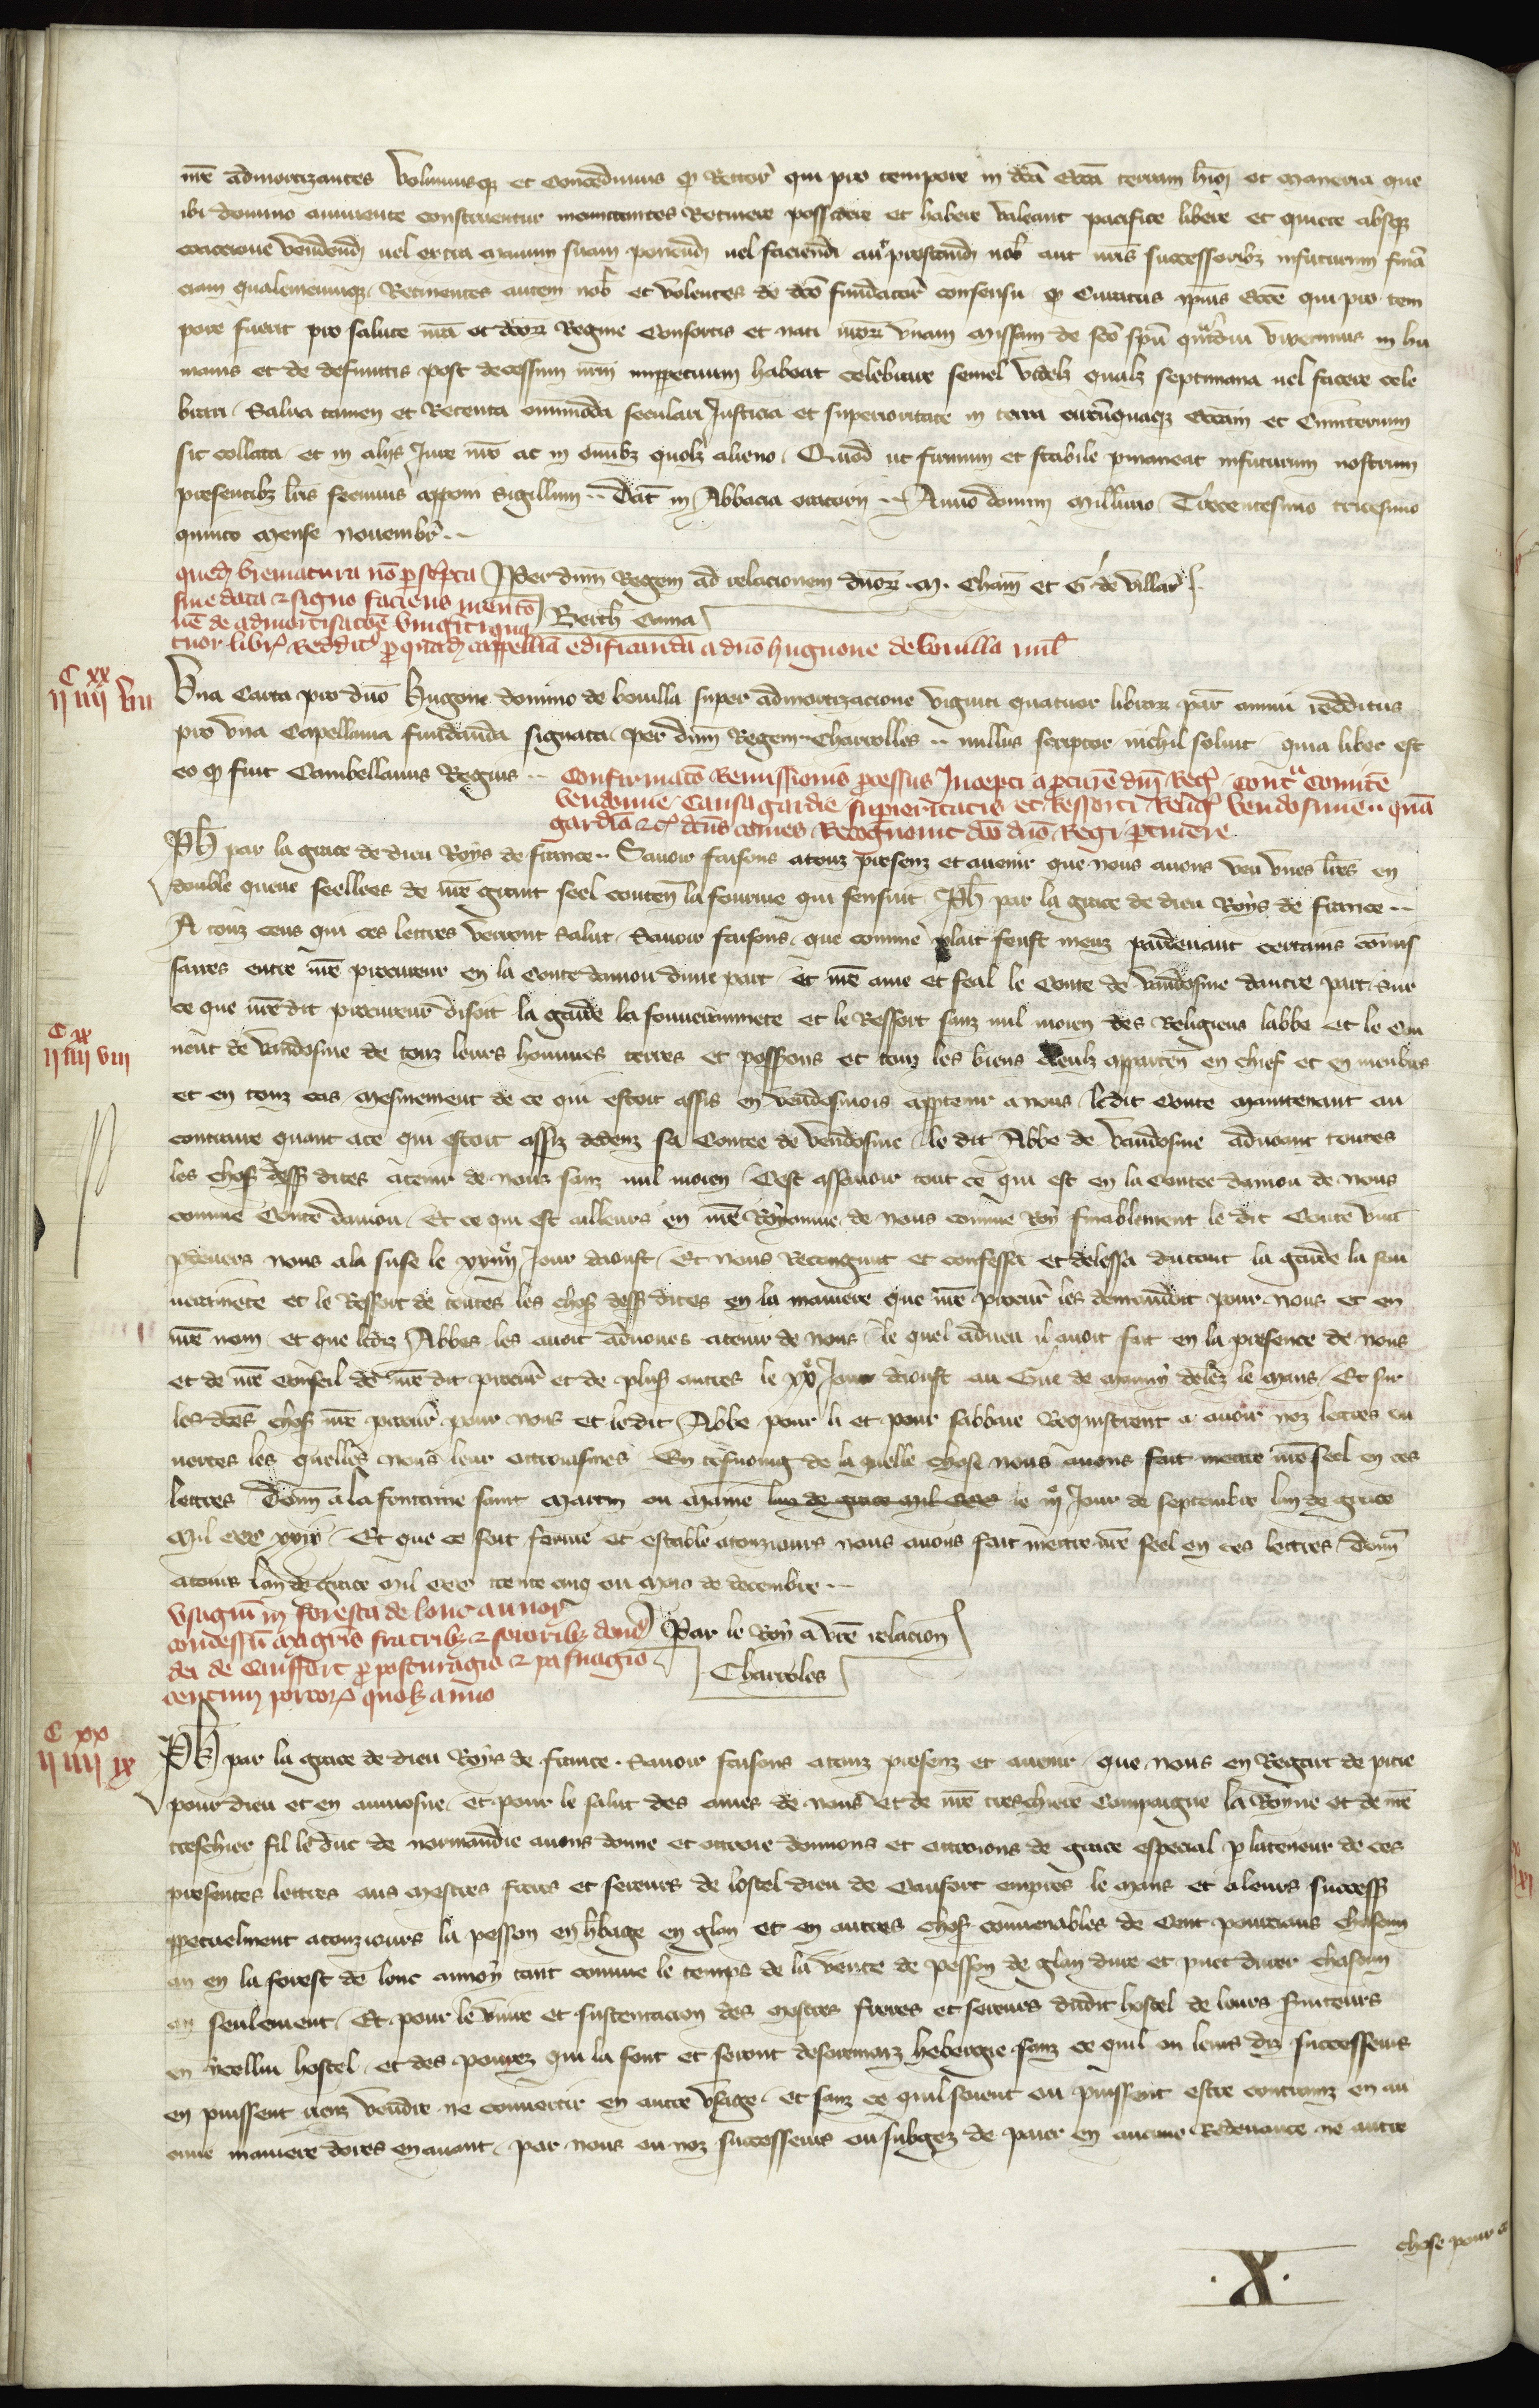 nre admortizantes Volumusque et Concedimus quod Rector qui pro tempore in dca Eccia terram huiusmodi et maneria que
ibi domino annuente construentur inantea Retinere possidere et habere valeant pacifice libere et quiete absque
coactione vendendi uel extra manum suam ponendi uel faciendi aut prestandi nob aut nris successoribz infuturum financiam
ciam qualemcunque. Retinentes autem nob et volentes de dco fundatore consensu quod Curatus ipsius Eccie qui pro tem
pore fuerit pro salute nra et dcorum Regine Consortis et nati nrorum vnam Missam de sco spu quamdiu vixerimus in hu
manis et de defunctis post decessum nrm imperpetuum habeat celebrare semel videlz qualz septimana uel facere cele
brari. Salua tamen et Retenta omnimoda seculari Justicia et superioritate in terra Eccam et Cimiterium
sic collata et in alijs Jure nro ac in omnibz quolz alieno. Quod ut firmum et stabile pmaneat infuturum nostrum
presentibz lris fecimus apponi sigillum .. Dat in Abbacia .. Anno domini Millimo Trecentesimo tricesimo
quinto Mense Nouembr ..
quedam breuiatura no pscripta Per dnm Regem ad relacionem dnorum . M. Cham et G de Villar
sine data et signo faciens mento
ne de admortisacoe viginti qua Berth
tuor libr Reddit p quadam cappellia edificanda a dno hugone de bouilla mil
C XX
II IIII VII
Vna Carta pro dno Hugone domino de bouilla super admortizacione viginti quatuor librarum par annui redditus
pro vna Capellania fundanda signata. Per dnm Regem .. Charrolles .. nullus scriptor nichil soluit quia liber est
eo quod fuit Cambellanus Regius ..
Confirmaco Remissionis pcessus Incepti a pcure dni Reg. Contra Comite
vendome. Causa gardie superioritatis et Ressorti Relig. vendosmen. qua
gardia etc. dcus comes Recognouit dco dno Regi ptinere
Ph par la grace de dieu Roys de france .. Sauoir faisons atouz presenz et auenir que nous auons veu vnes lres en
double queue seellees de nre grant seel conten la fourme qui sensuit Ph par la grace de dieu Roys de france ..
A touz ceus qui ces lettres verront Salut. Sauoir faisons. que comme plait feust meuz pardeuant certains commis
saires entre nre procureur en la Conte danjou dune part et nre ame et feal le Conte de Vandosme dautre part. sur
ce que nre dit procureur disoit la garde la souuerainnete et le Ressort sanz nul moien des Religieus labbe et le Cou
uent de Vandosme de touz leurs hommes terres et possions et touz les biens deulz apparten en chief et en menbres
et en touz cas mesmement de ce qui estoit assis en vendosmois apptenir a nous. ledit Conte maintenant au
contraire quant ace qui estoit assiz dedenz sa Contee de Vendosme. le dit Abbe de Vandosme aduoant toutes
les choses dess dites atenir de nous sanz nul moien. Cest assauoir tout ce qui est en la Contee danjou de nous
comme Conte danjou. Et ce qui est ailleurs en nre Royaume de nous comme Roy finablement le dit Conte vint
pdeuers nous ala suse le xxiiije Jour daoust. Et nous Recongnut et confessa et delessa du tout la garde la sou
uerainnete et le Ressort de toutes les choses dess dites en la maniere que nre procur les demandoit pour nous et en
nre nom. et que ledit Abbes les auoit aduoues atenir de nous. le quel adueu il auoit fait en la presence de nous
et de nre Conseil de nre dit procur et de plus autres le xxe Jour daoust au Gue de mauny delez le Mans. Et sur
lesdces choses nre procur pour nous et ledit Abbe pour li et pour sabbaie Requistrent a auoir noz lettres ou
uertes les quelles nous leur ottroiasmes En tesmoing de la quelle chose nous auons fait mettre nre seel en ces
lettres Donn a la fontaine saint Martin ou Maine lan de grace mil ccc le iije Jour de septembre lan de grace
Mil ccc xxix. Et que ce soit ferme et estable atouzjours nous auons fait mettre nre seel en ces lettres. Donn
atours lan de grace mil ccc trente cinq ou Mois de decembre ..
C XX
II IIII VIII
vsagiu in foresta de lonc aunor
concessu magris fratribz et sororibz domus Par le Roy a vre relacion
dei de Cauffort p pasturagio et pasnagio Charroles
centum porcor quolz anno
C XX
II IIII IX
Ph par la grace de dieu Roys de france. Sauoir faisons atouz presenz et auenir. que nous en Regart de pitie
pour dieu et en aumosne. et pour le salut des ames de nous et de nre treschiere Compaigne la Royne et de nre
treschier fil le duc de normandie auons donne et ottroie donnons et ottroions de grace especial p lateneur de ces
presentes lettres aus Mestres freres et sereurs de lostel dieu de Caufort empres le Mans et a leurs success
ppetuelment atouzjours la pesson en hbage en glan et en autres choses conuenables de Cent pourceaus chascun
an en la forest de lonc aunoy tant comme le temps de la vente de pesson de glan dure et puet durer chascun
an seulement. Et pour le viure et sustentacion des Mestres freres et sereurs dudit hostel de leurs seruiteurs
en ycellui hostel. et des pourez qui la sont et seront desoremaiz hebergie sanz ce quil ou leurs diz successeurs
en puissent riens vendre ne conuertir en autre vsage. et sanz ce quil soient ou puissent estre contrainz en au
cune maniere dores en auant. par nous ou noz successeurs ou subgez de paier en aucune Redeuance ne autre
chose pour
. X .